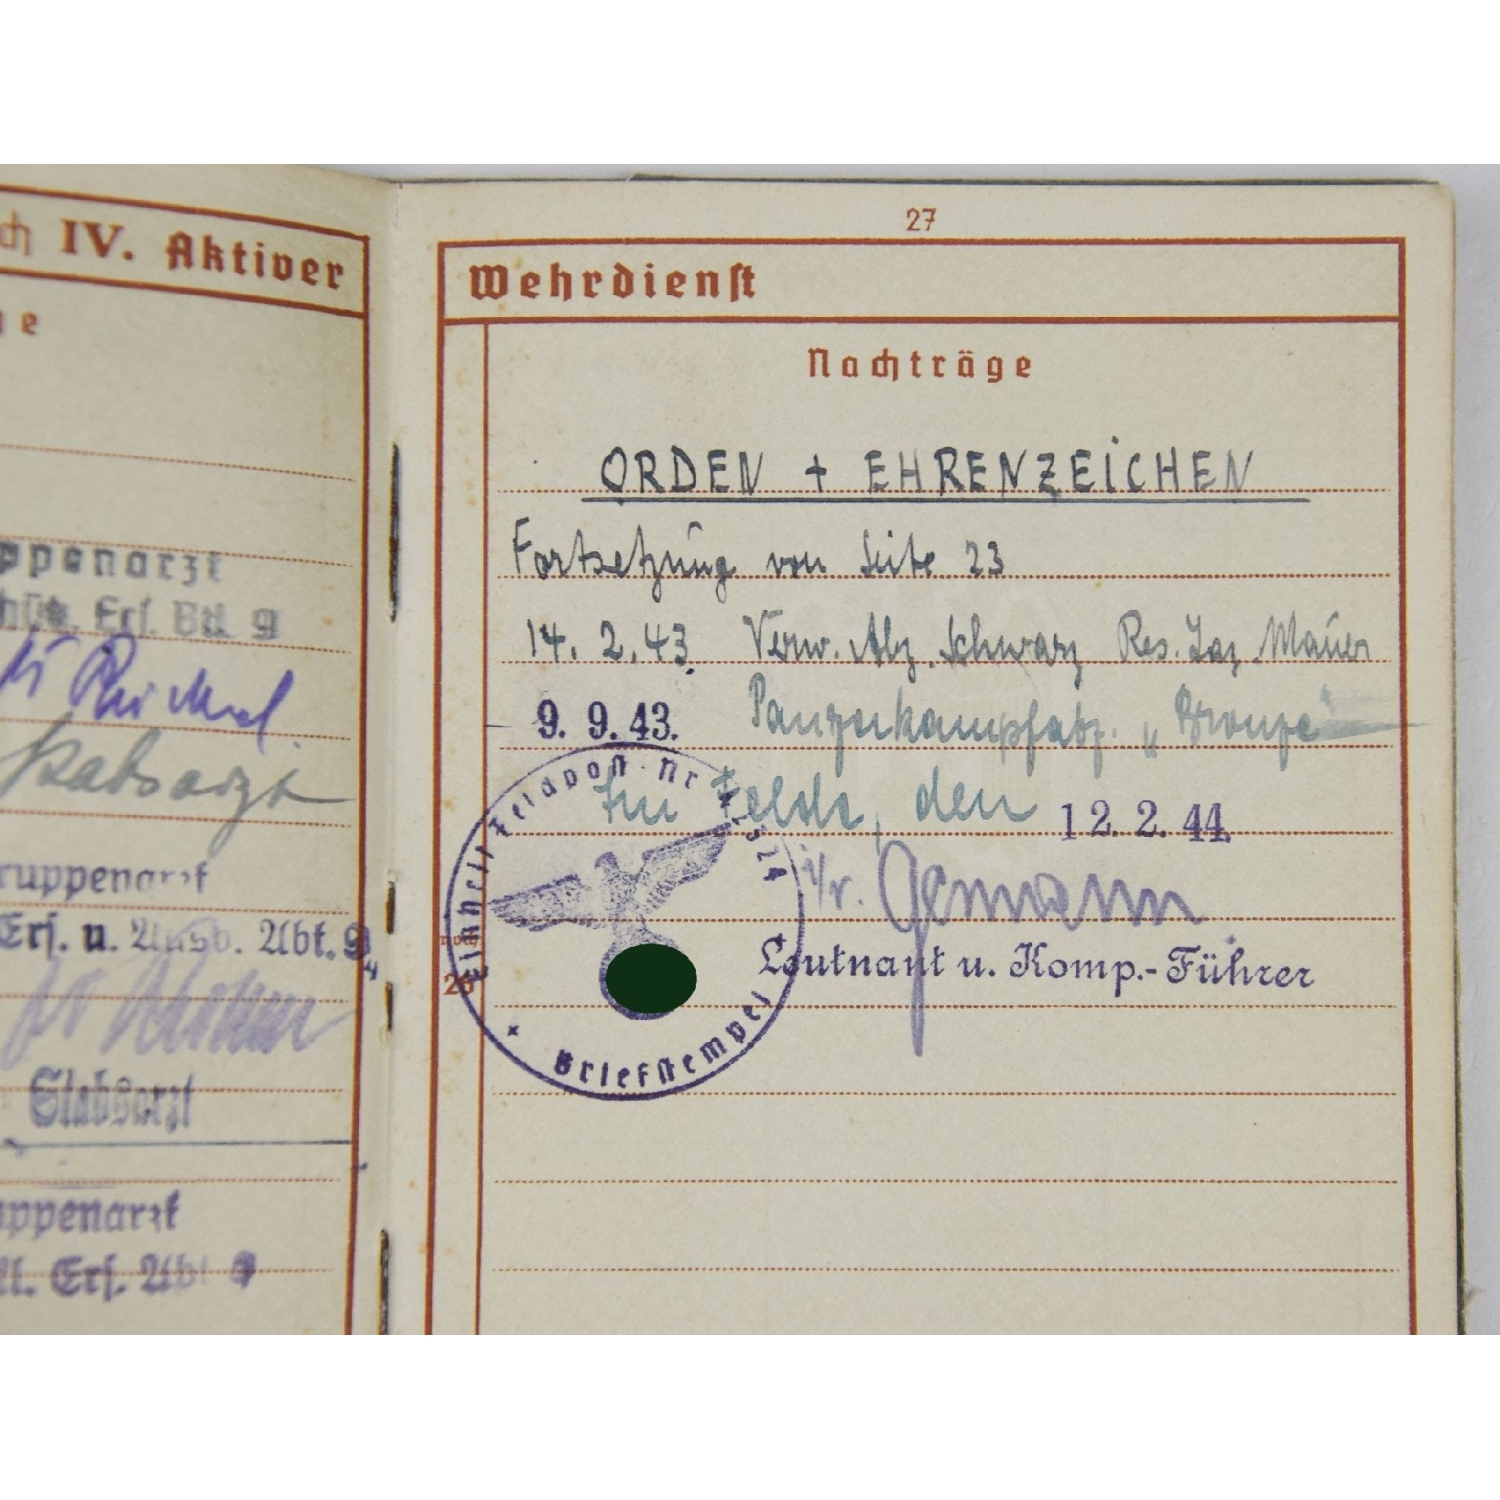 IV. Aktiver
ge
ppenarzt
Ers. Btl. 9
Stabsarzt
ruppenarzt
Ers. u. Ausb. Abt. 9
Stabsarzt
uppenarzt
kl. Ers. Abt 9
27
Wehrdienst
Nachträge
ORDEN + EHRENZEICHEN
Fortsetzung von Seite 23
14. 2. 43. Verw. Abz. Schwarz Res. Laz. Mauer
9. 9. 43. Panzerkampfabz. „Bronze"
Im Felde, den 12. 2. 44.
Einheit Feldpost Nr
Briefstempel
Leutnant u. Komp.-Führer
noch